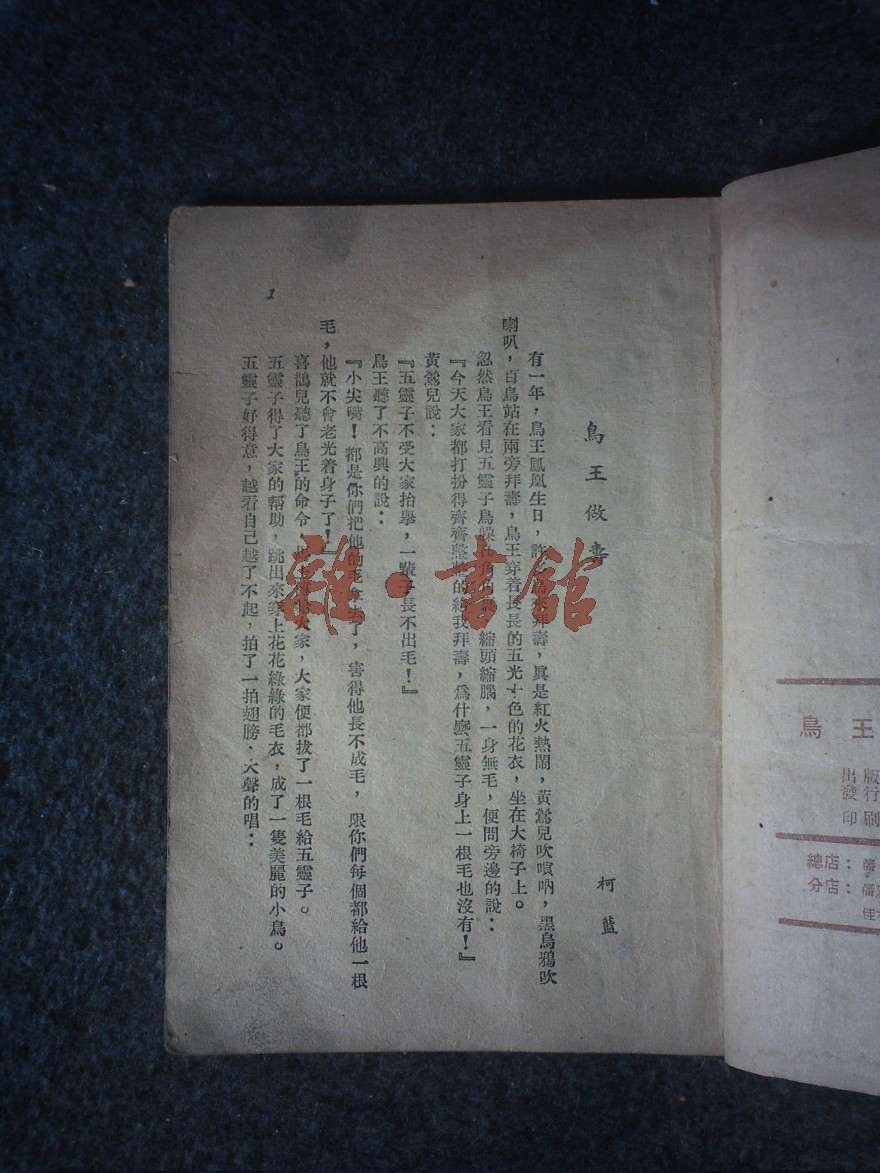 鳥王做壽
柯藍
有一年，鳥王鳳凰生日，許 拜壽，眞是紅火熱鬧，黃鶯兒吹嗩吶，黑烏鴉吹
喇叭，百鳥站在兩旁拜壽，鳥王穿着長長的五光十色的花衣，坐在大椅子上。
忽然鳥王看見五靈子鳥 縮頭縮腦，一身無毛，便問旁邊的說：
『今天大家都打扮得齊齊整整的給我拜壽，爲什麼五靈子身上一根毛也沒有！』
黃鶯兒說：
『五靈子不受大家抬舉，一輩子長不出毛！』
鳥王聽了不高興的說：
『小尖嘴！都是你們把他的毛 了，害得他長不成毛，限你們每個都給他一根
毛，他就不會老光着身子了！』
喜鵲兒聽了鳥王的命令 大家，大家便都拔了一根毛給五靈子。
五靈子得了大家的幫助，跳出來穿上花花綠綠的毛衣，成了一隻美麗的小鳥。
五靈子好得意，越看自己越了不起，拍了一拍翅膀，大聲的唱：
1
雜·書館
鳥王
出版
發行
印刷
總店：
分店：
佳